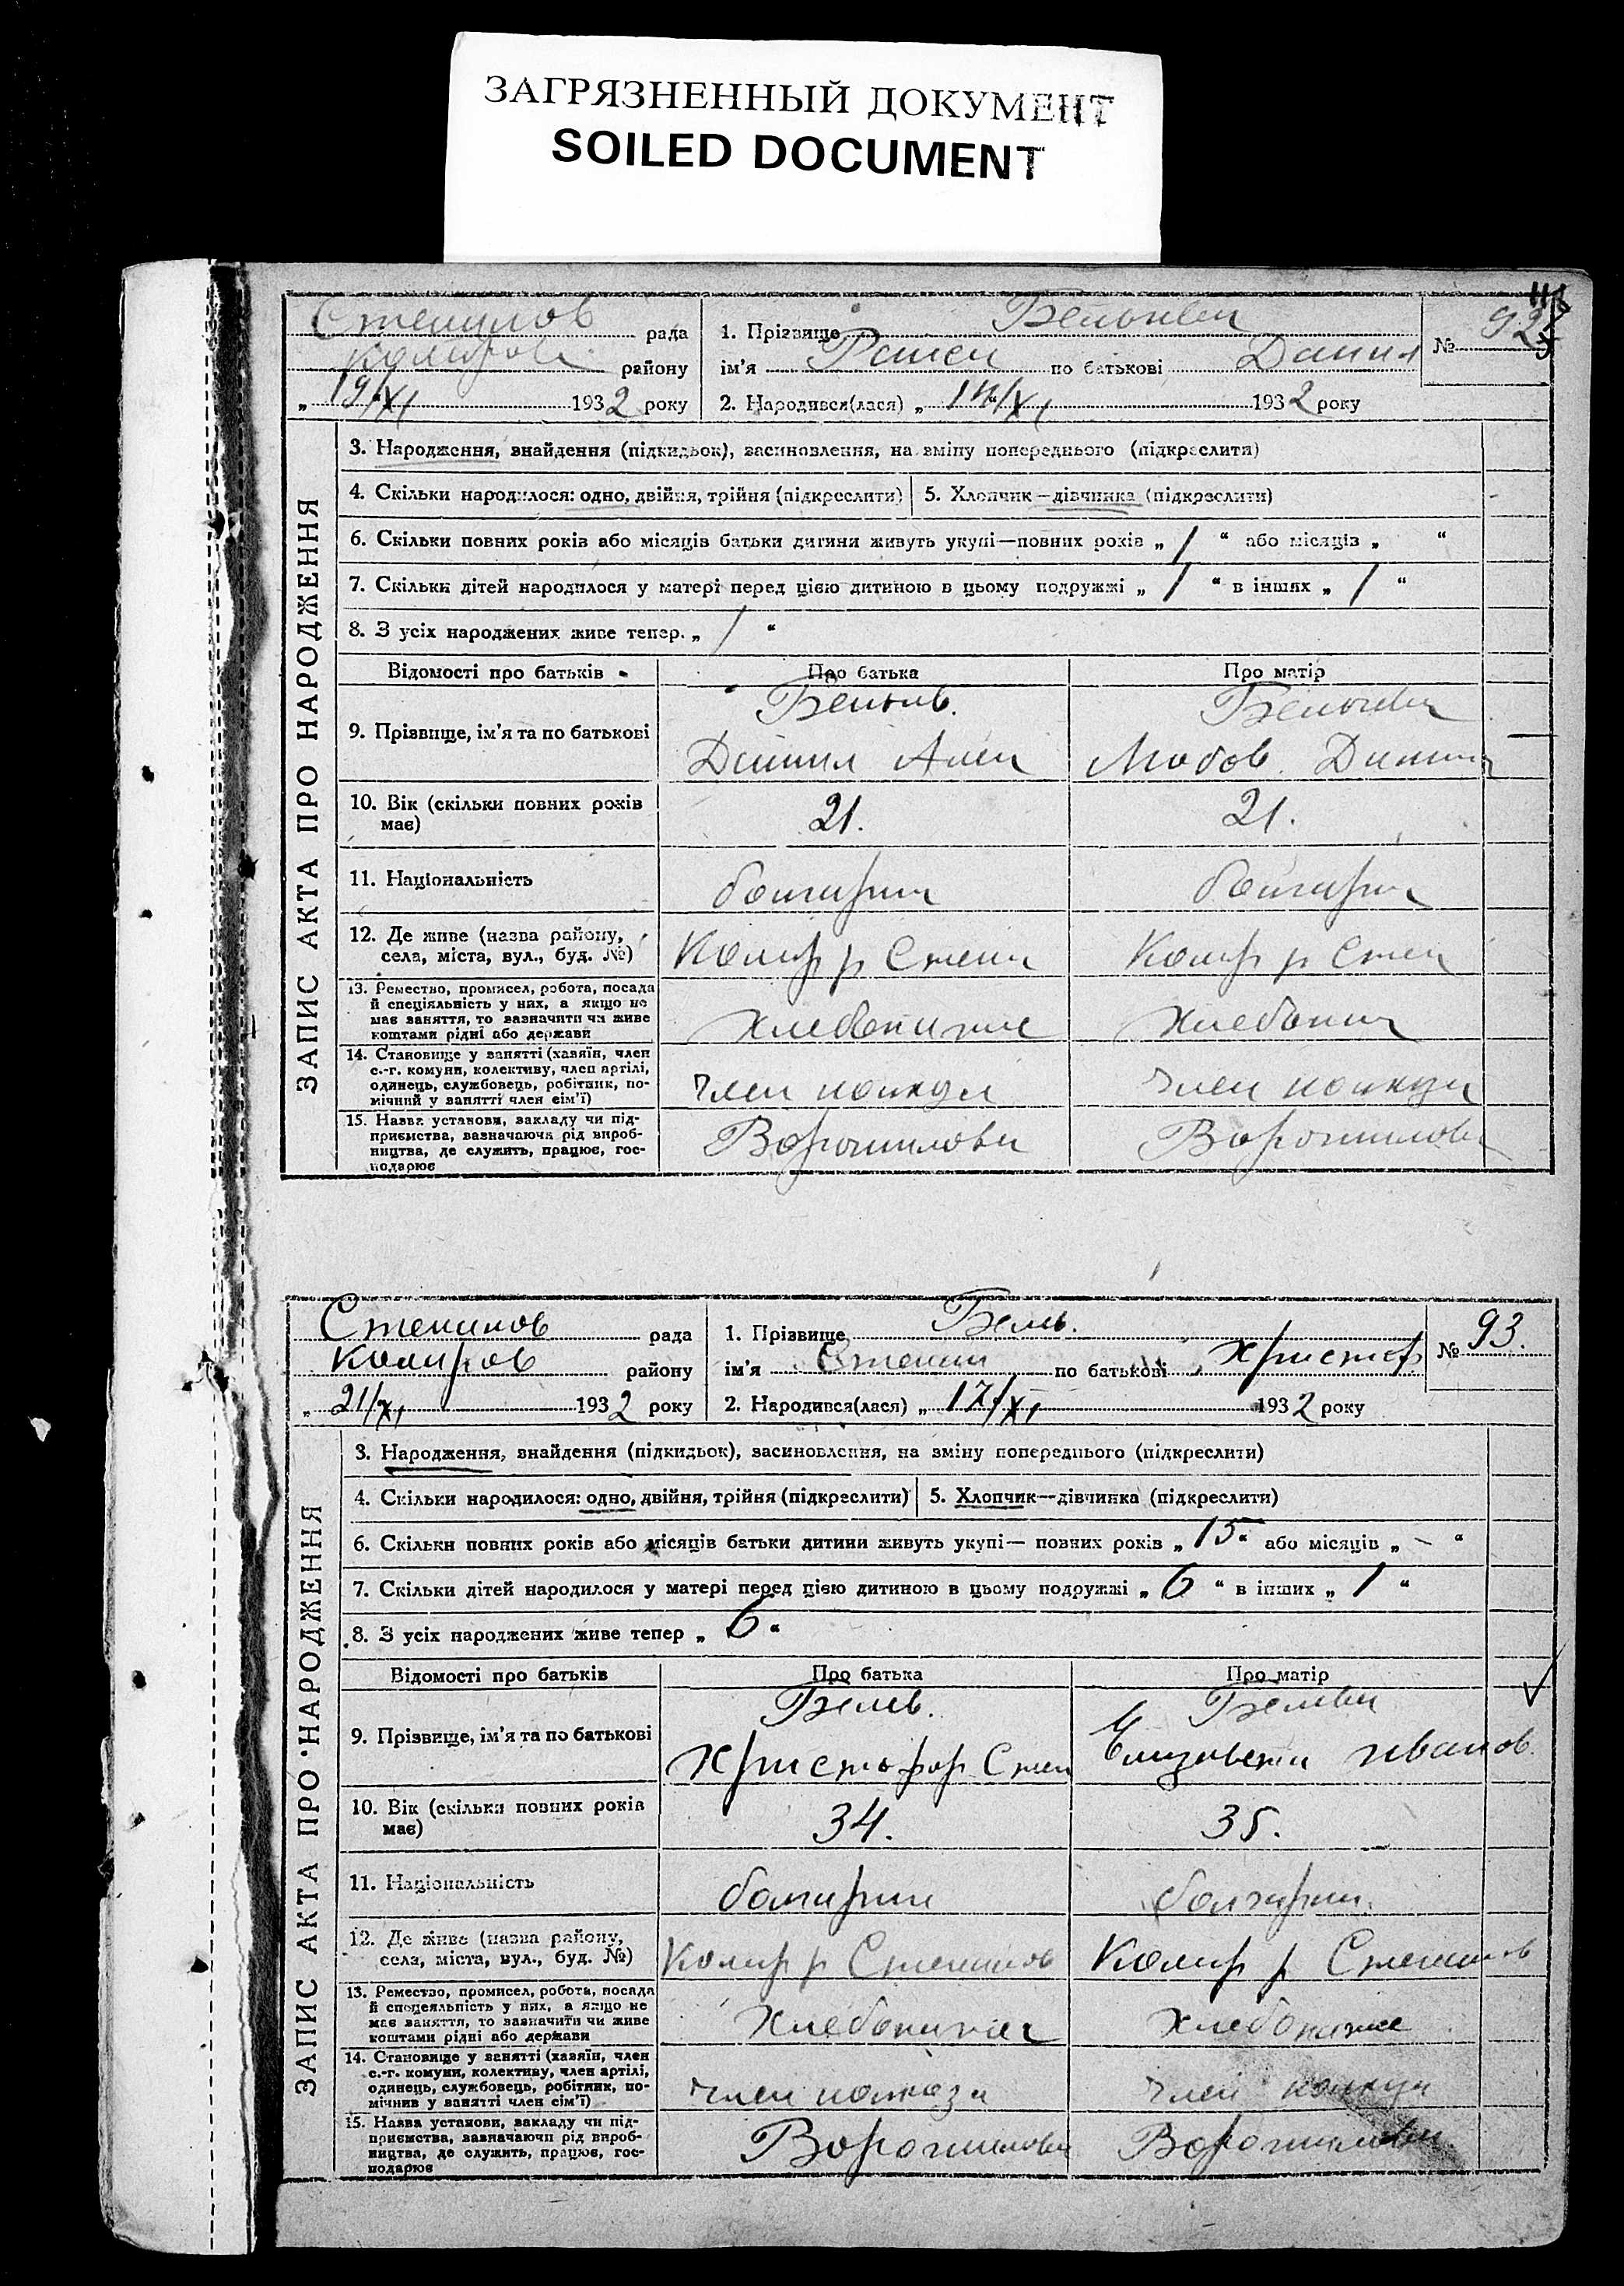 ЗАГРЯЗНЕННЫЙ ДОКУМЕНТ
SOILED DOCUMENT
рада
району
„ 19/XI 1932 року
1. Прізвище
ім'я по батькові Данил
2. Народився(лася) „ 1932 року
№ 92
ЗАПИС АКТА ПРО НАРОДЖЕННЯ
3. Народження, знайдення (підкидьок), засиновлення, на зміну попереднього (підкреслити)
4. Скільки народилося: одно, двійня, трійня (підкреслити)
5. Хлопчик—дівчинка (підкреслити)
6. Скільки повних років або місяців батьки дитини живуть укупі—повних років „ / “ або місяців „ “
7. Скільки дітей народилося у матері перед цією дитиною в цьому подружжі „ / “ в інших „ / “
8. З усіх народжених живе тепер. „ / “
Відомості про батьків
Про батька
Про матір
9. Прізвище, ім'я та по батькові
10. Вік (скільки повних років
має)
21.
21.
11. Національність
болгарин
болгарин
12. Де живе (назва району,
села, міста, вул., буд. №)
Колар р Степ
Колар р Степ
13. Ремество, промисел, робота, посада
й спеціяльність у них, а якщо не
має заняття, то зазначити чи живе
коштами рідні або держави
14. Становище у занятті (хазяїн, член
с.-г. комуни, колективу, член артілі,
одинець, службовець, робітник, по-
мічний у занятті член сім'ї)
член
член
15. Назва установи, закладу чи під-
приємства, зазначаючи рід вироб-
ництва, де служить, працює, гос-
подарює
Ворошилова
Ворошилова
Степанов рада
Коларов району
„ 21/XI 1932 року
1. Прізвище Белев.
ім'я Степан по батькові Христоф
2. Народився(лася) „ 17/XI 1932 року
№ 93.
ЗАПИС АКТА ПРО НАРОДЖЕННЯ
3. Народження, знайдення (підкидьок), засиновлення, на зміну попереднього (підкреслити)
4. Скільки народилося: одно, двійня, трійня (підкреслити)
5. Хлопчик—дівчинка (підкреслити)
6. Скільки повних років або місяців батьки дитини живуть укупі— повних років „ 15 “ або місяців „ – “
7. Скільки дітей народилося у матері перед цією дитиною в цьому подружжі „ 6 “ в інших „ 1 “
8. З усіх народжених живе тепер „ 6 “
Відомості про батьків
Про батька
Про матір
9. Прізвище, ім'я та по батькові
Белев.
Христофор Степ
Белева
Елизавета Иванов
10. Вік (скільки повних років
має)
34.
35.
11. Національність
болгарин
болгарин
12. Де живе (назва району,
села, міста, вул., буд. №)
Колар р Степанов
Колар р Степанов
13. Ремество, промисел, робота, посада
й спецеяльність у них, а якщо не
має заняття, то зазначити чи живе
коштами рідні або держави
14. Становище у занятті (хазяїн, член
с.-г. комуни, колективу, член артілі,
одинець, службовець, робітник, по-
мічнив у занятті член сім'ї)
член колхоза
член
15. Назва установи, закладу чи під-
приємства, зазначаючи рід вироб-
ництва, де служить, працює, гос-
подарює
Ворошилова
Ворошилова